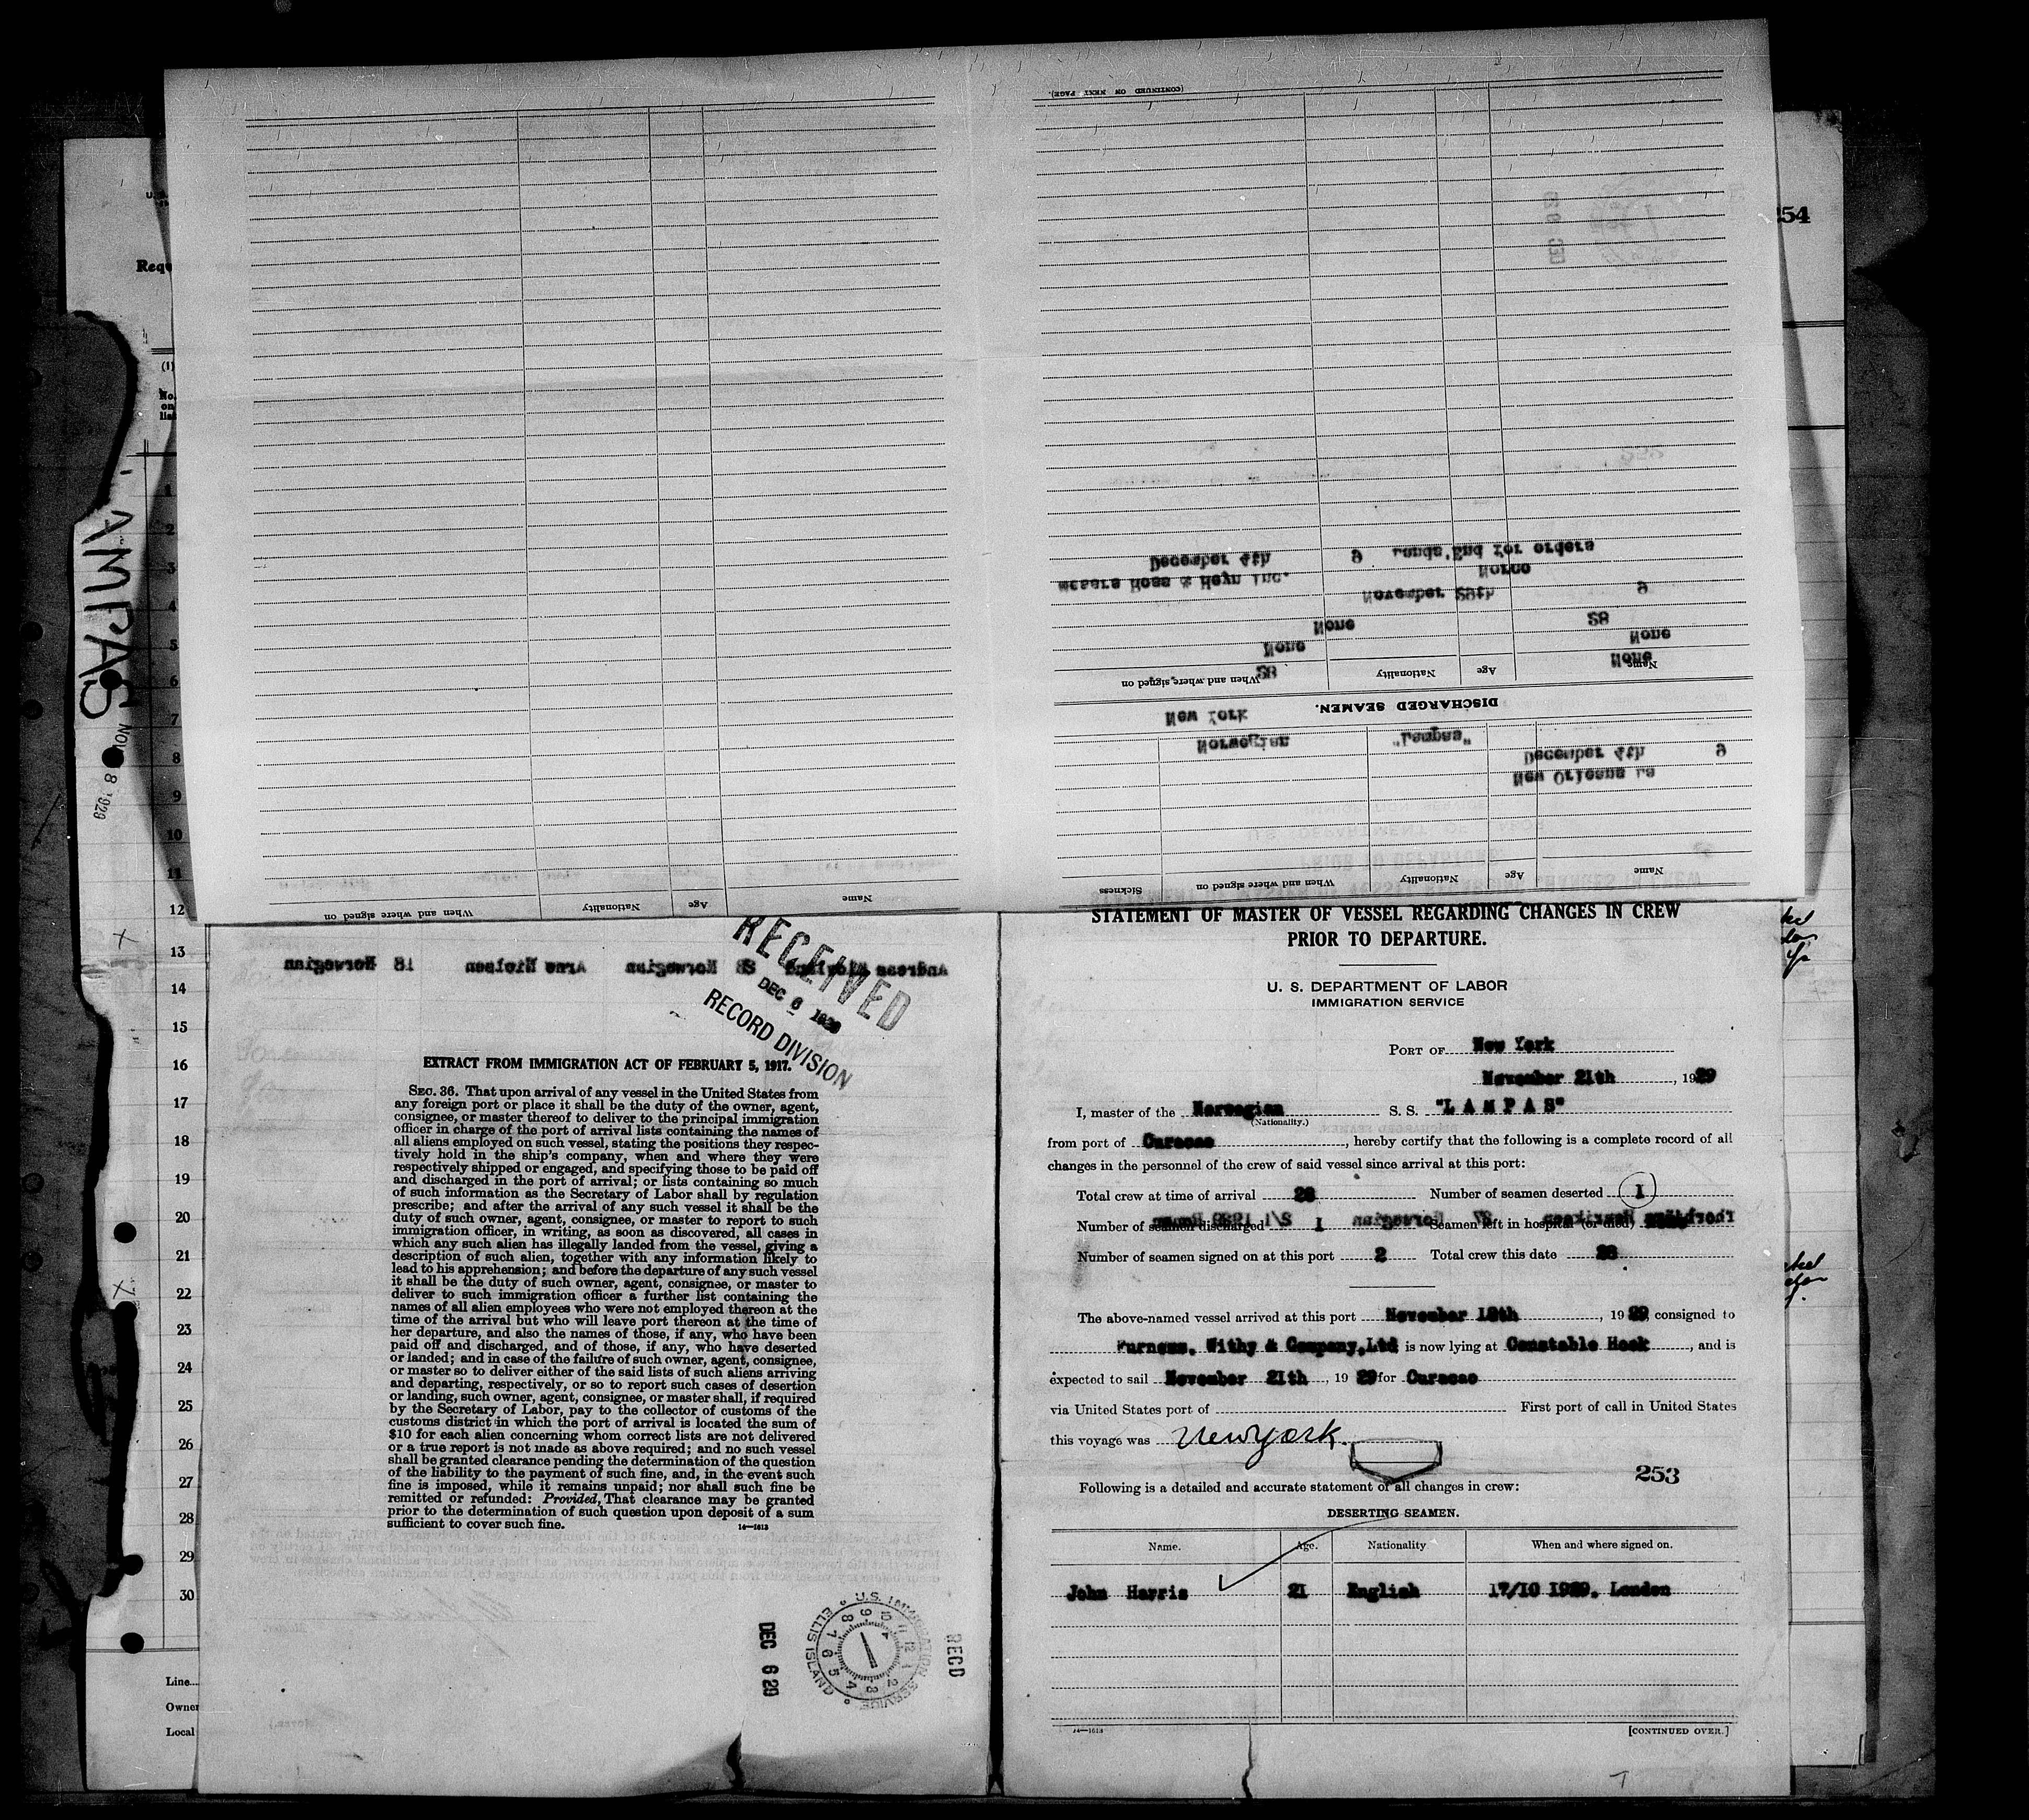 254
(CONTINUED ON NEXT PAGE).
December 4th 9 Lands End for orders
Messrs Ross & Heyn Inc. Norco
November 29th 9
None 28
None None
28 None
Name Age Nationality When and where signed on
DISCHARGED SEAMEN.
New York
Norwegian "Lampas"
December 4th 9
New Orleans La
Name Age Nationality When and where signed on Sickness
Name Age Nationality When and where signed on
LAMPAS
NOV 8 1929
(1)
1
2
3
4
5
6
7
8
9
10
11
12
13
14
15
16
17
18
19
20
21
22
23
24
25
26
27
28
29
30
Line
Owner
Local
Andreas 28 Norwegian Arne Nielsen 18 Norwegian
RECEIVED
DEC 6 1929
RECORD DIVISION
EXTRACT FROM IMMIGRATION ACT OF FEBRUARY 5, 1917.
SEC. 36. That upon arrival of any vessel in the United States from
any foreign port or place it shall be the duty of the owner, agent,
consignee, or master thereof to deliver to the principal immigration
officer in charge of the port of arrival lists containing the names of
all aliens employed on such vessel, stating the positions they respec-
tively hold in the ship's company, when and where they were
respectively shipped or engaged, and specifying those to be paid off
and discharged in the port of arrival; or lists containing so much
of such information as the Secretary of Labor shall by regulation
prescribe; and after the arrival of any such vessel it shall be the
duty of such owner, agent, consignee, or master to report to such
immigration officer, in writing, as soon as discovered, all cases in
which any such alien has illegally landed from the vessel, giving a
description of such alien, together with any information likely to
lead to his apprehension; and before the departure of any such vessel
it shall be the duty of such owner, agent, consignee, or master to
deliver to such immigration officer a further list containing the
names of all alien employees who were not employed thereon at the
time of the arrival but who will leave port thereon at the time of
her departure, and also the names of those, if any, who have been
paid off and discharged, and of those, if any, who have deserted
or landed; and in case of the failure of such owner, agent, consignee,
or master so to deliver either of the said lists of such aliens arriving
and departing, respectively, or so to report such cases of desertion
or landing, such owner, agent, consignee, or master shall, if required
by the Secretary of Labor, pay to the collector of customs of the
customs district in which the port of arrival is located the sum of
$10 for each alien concerning whom correct lists are not delivered
or a true report is not made as above required; and no such vessel
shall be granted clearance pending the determination of the question
of the liability to the payment of such fine, and, in the event such
fine is imposed, while it remains unpaid; nor shall such fine be
remitted or refunded: Provided, That clearance may be granted
prior to the determination of such question upon deposit of a sum
sufficient to cover such fine.
14—1613
DEC 6 29
U.S. IMMIGRATION SERVICE ELLIS ISLAND
RECD
STATEMENT OF MASTER OF VESSEL REGARDING CHANGES IN CREW
PRIOR TO DEPARTURE.
U. S. DEPARTMENT OF LABOR
IMMIGRATION SERVICE
PORT OF New York
November 21th, 1929
I, master of the Norwegian S. S. "LAMPAS"
(Nationality.)
from port of Curacao, hereby certify that the following is a complete record of all
changes in the personnel of the crew of said vessel since arrival at this port:
Total crew at time of arrival 28 Number of seamen deserted 1
Number of seamen discharged 1 Seamen left in hospital (or died)
Number of seamen signed on at this port 2 Total crew this date 28
The above-named vessel arrived at this port November 18th, 1929, consigned to
Furness, Withy & Company, Ltd is now lying at Constable Hook, and is
expected to sail November 21th, 1929 for Curacao
via United States port of First port of call in United States
this voyage was New york.
253
Following is a detailed and accurate statement of all changes in crew:
DESERTING SEAMEN.
Name. Age. Nationality When and where signed on.
John Harris 21 English 17/10 1929, London
14—1613
[CONTINUED OVER.]